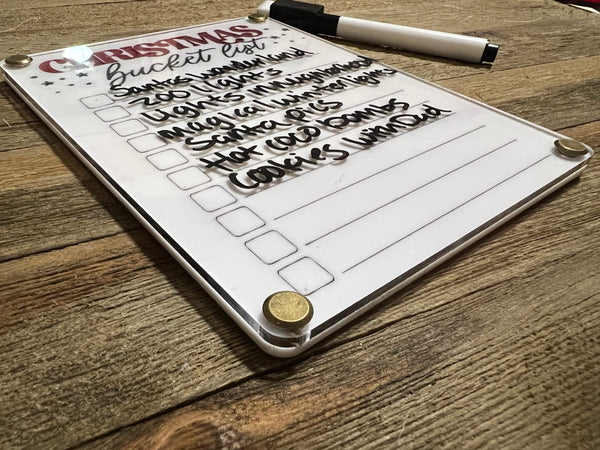 CHRISTMAS
bucket list
Santas Wonderland
Zoo Lights
Lights in neighborhood
Magical winter lights
Santa pics
Hot coco bombs
Cookies with Dad